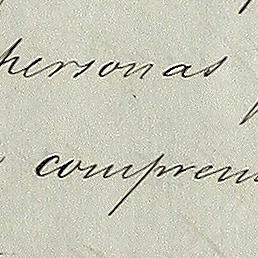 personas
compren